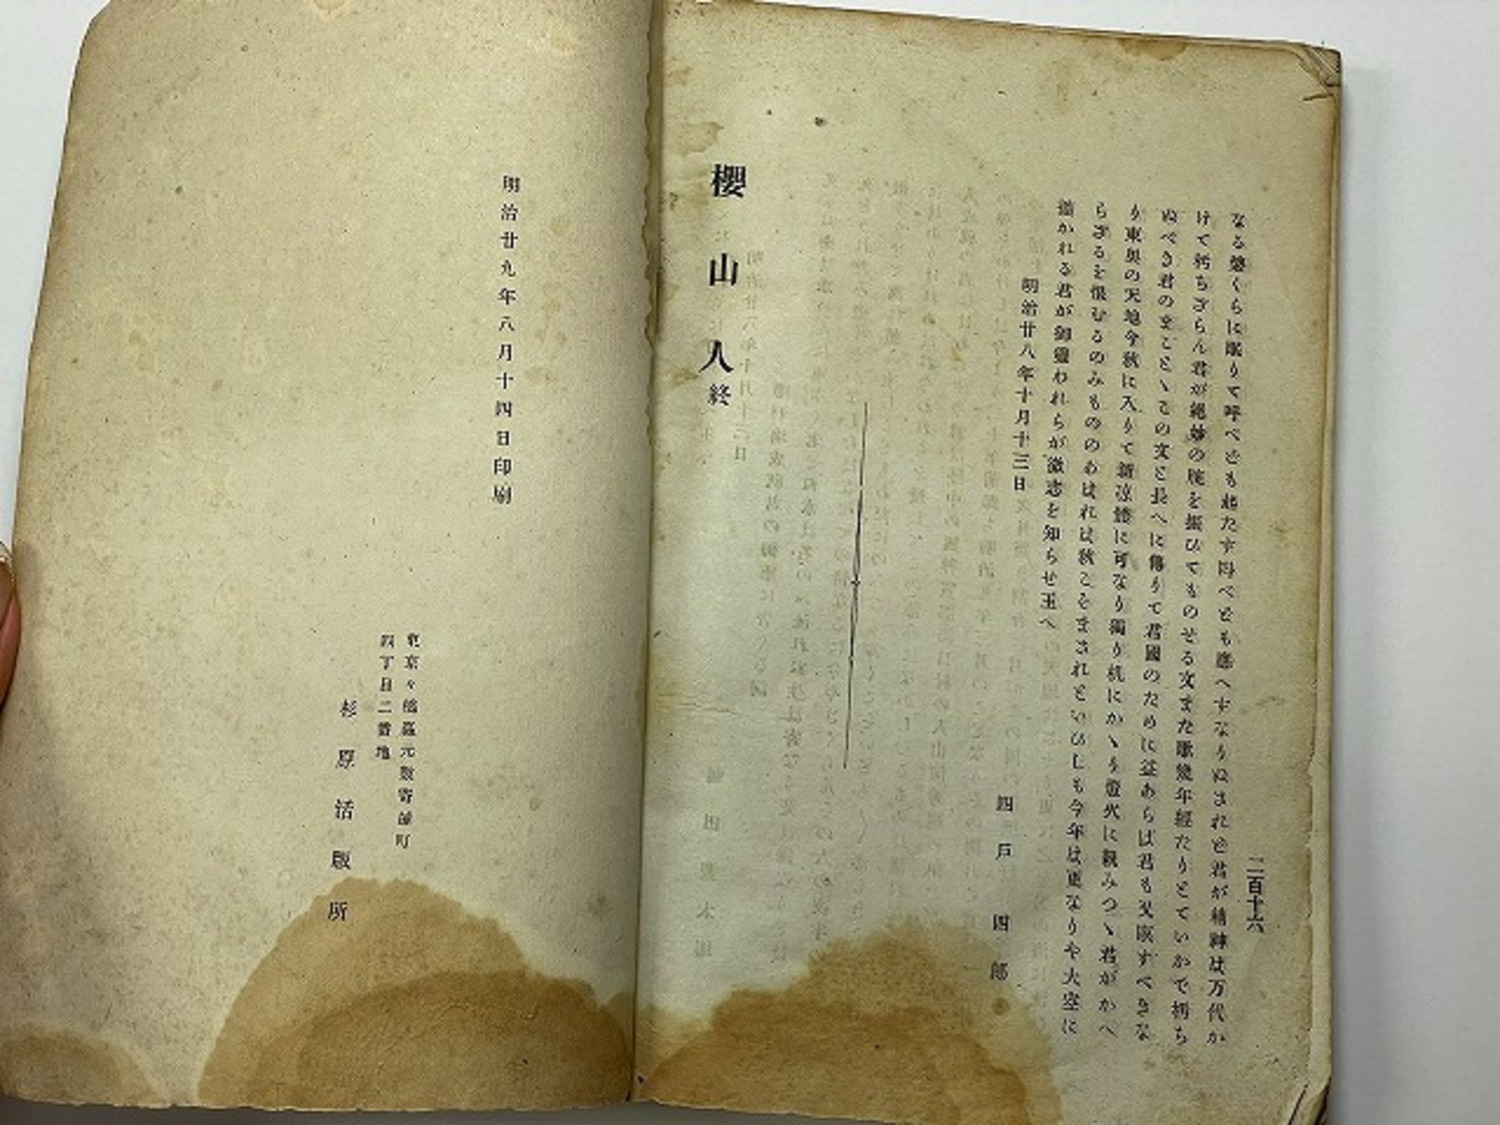 二百十六
なる磐くらに眠りて呼べども起たず叫べども應へずなりぬされど君が精神は万代か
けて朽ちざらん君が絶妙の腕を振ひてものせる文また歌幾年經たりとていかで朽ち
ぬべき君のまことゝこの文と長へに傳りて君國のために益あらば君も又瞑すべきな
り東奥の天地今秋に入りて新凉に可なり獨り机にかゝり燈火に親みつゝ君がかへ
らざるを恨むるのみもののあはれは秋こそまされといひしも今年は更なりや大空に
かれる君が御靈われらが微志を知らせ玉へ
明治廿八年十月十三日
四戸四郎
櫻山人終
明治廿九年八月十四日印刷
東京々橋區元數寄屋町
四丁目二番地
杉原活版所